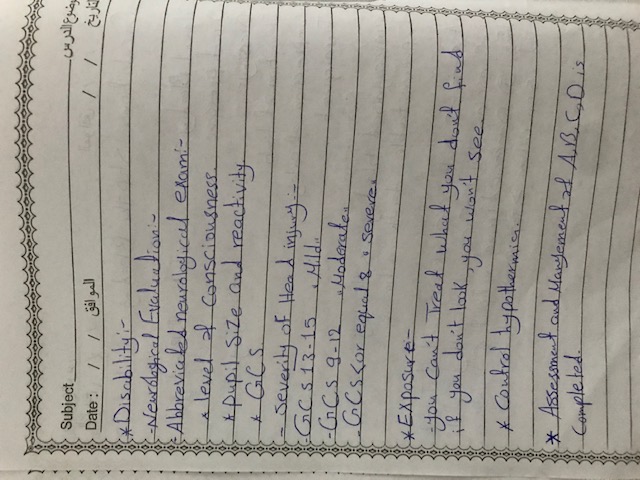 Subject موضوع الدرس
Date : / / الموافق / / التاريخ
* Disability:-
- Neurological Evaluation:-
- Abbreviated neurological exam:-
* level of consciousness
* pupil size and reactivity
* GCS
- Severity of Head injury:-
- GCS 13-15 "Mild"
- GCS 9-12 "Moderate"
- GCS < or equal 8 "severe"
* Exposure-
- you can't Treat what you don't find
if you don't look, you won't see
* Control hypothermia.
* Assessment and Mangement of A.B.C,D is
Completed.